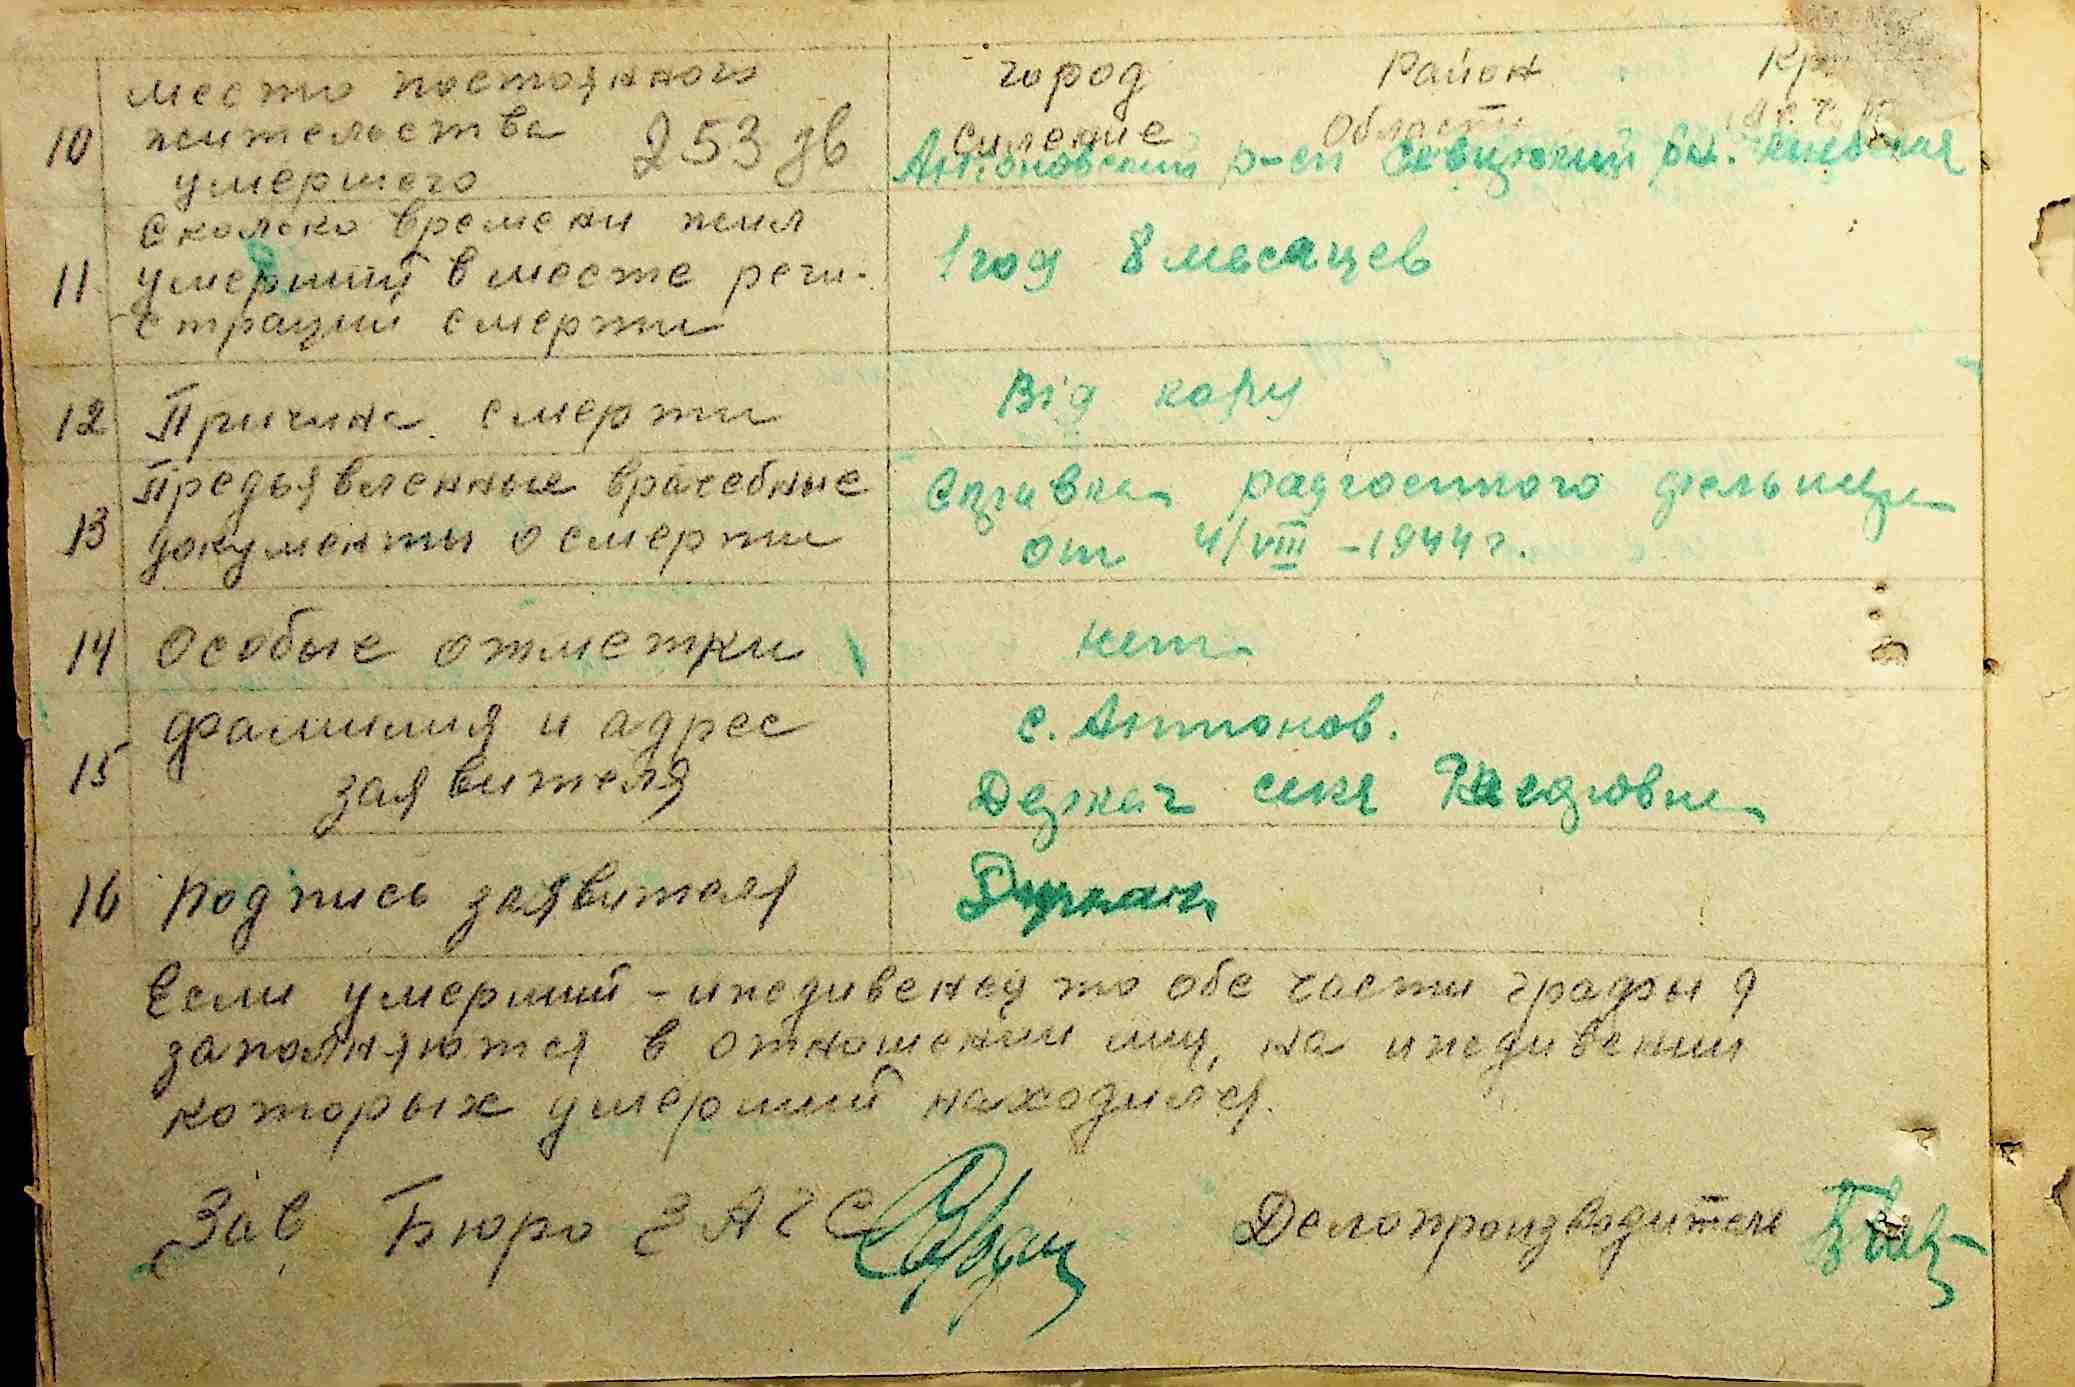 место постоянного город Район
10 жительства 253 дв Область
умершего Антоновский р-он
Сколько времени жил
11 умерший в месте реги- 1 год 8 месяцев
страции смерти
12 Причина смерти Від кору
Предъявленные врачебные Справка дільниці
13 документы о смерти от 4/VIII - 1944 г.
14 Особые отметки нет
фамилия и адрес с. Антонов.
15 заявителя
16 Подпись заявителя
Если умерший - иждивенец то обе части графы 9
заполняются в отношении лиц, на иждивении
которых умерший находился.
Зав Бюро ЗАГС Делопроизводитель